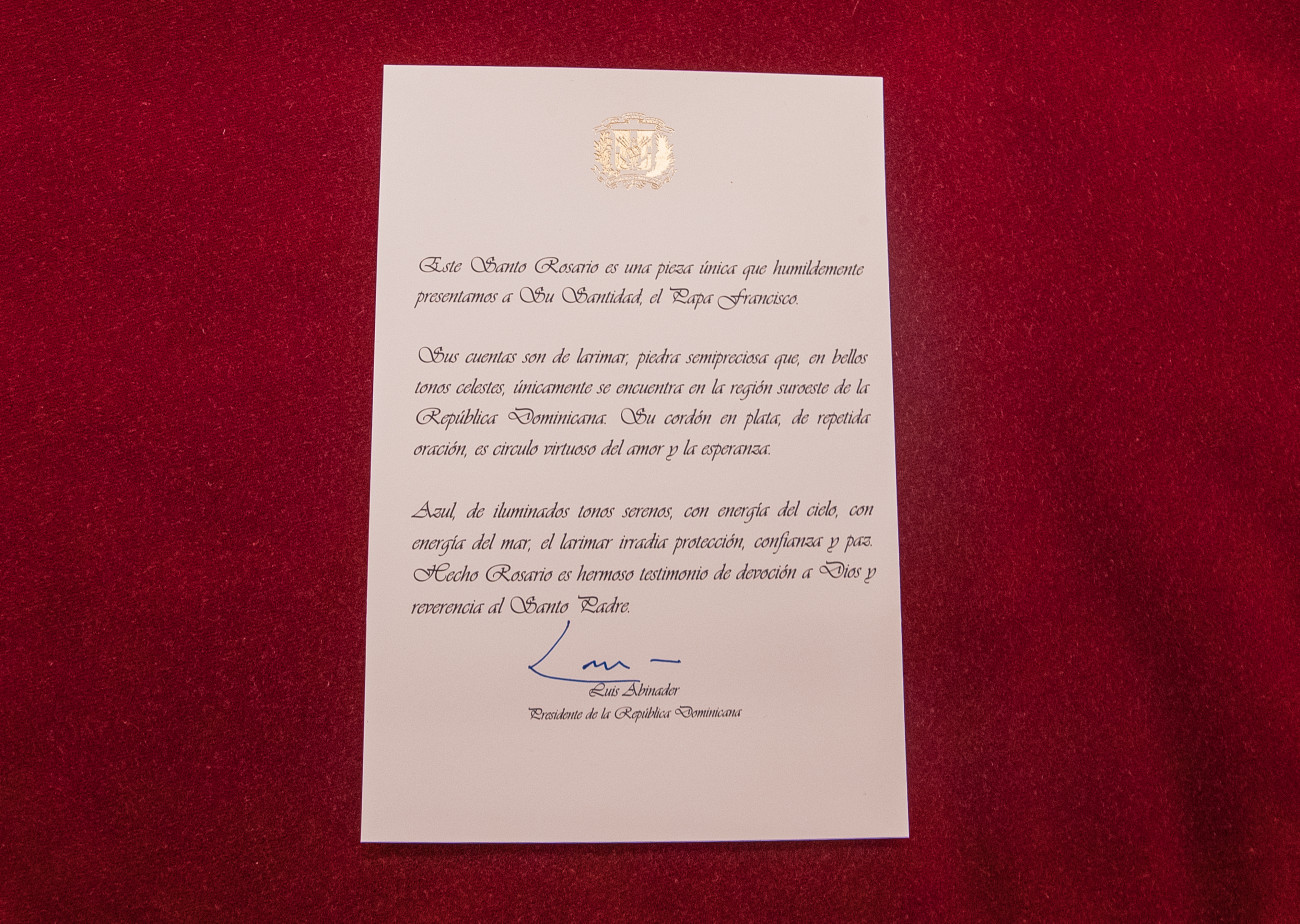 Este Santo Rosario es una pieza única que humildemente
presentamos a Su Santidad, el Papa Francisco.
Sus cuentas son de larimar, piedra semipreciosa que, en bellos
tonos celestes, únicamente se encuentra en la región suroeste de la
República Dominicana. Su cordón en plata, de repetida
oración, es circulo virtuoso del amor y la esperanza.
Azul, de iluminados tonos serenos, con energía del cielo, con
energía del mar, el larimar irradia protección, confianza y paz.
Hecho Rosario es hermoso testimonio de devoción a Dios y
reverencia al Santo Padre.
Luis Abinader
Presidente de la República Dominicana